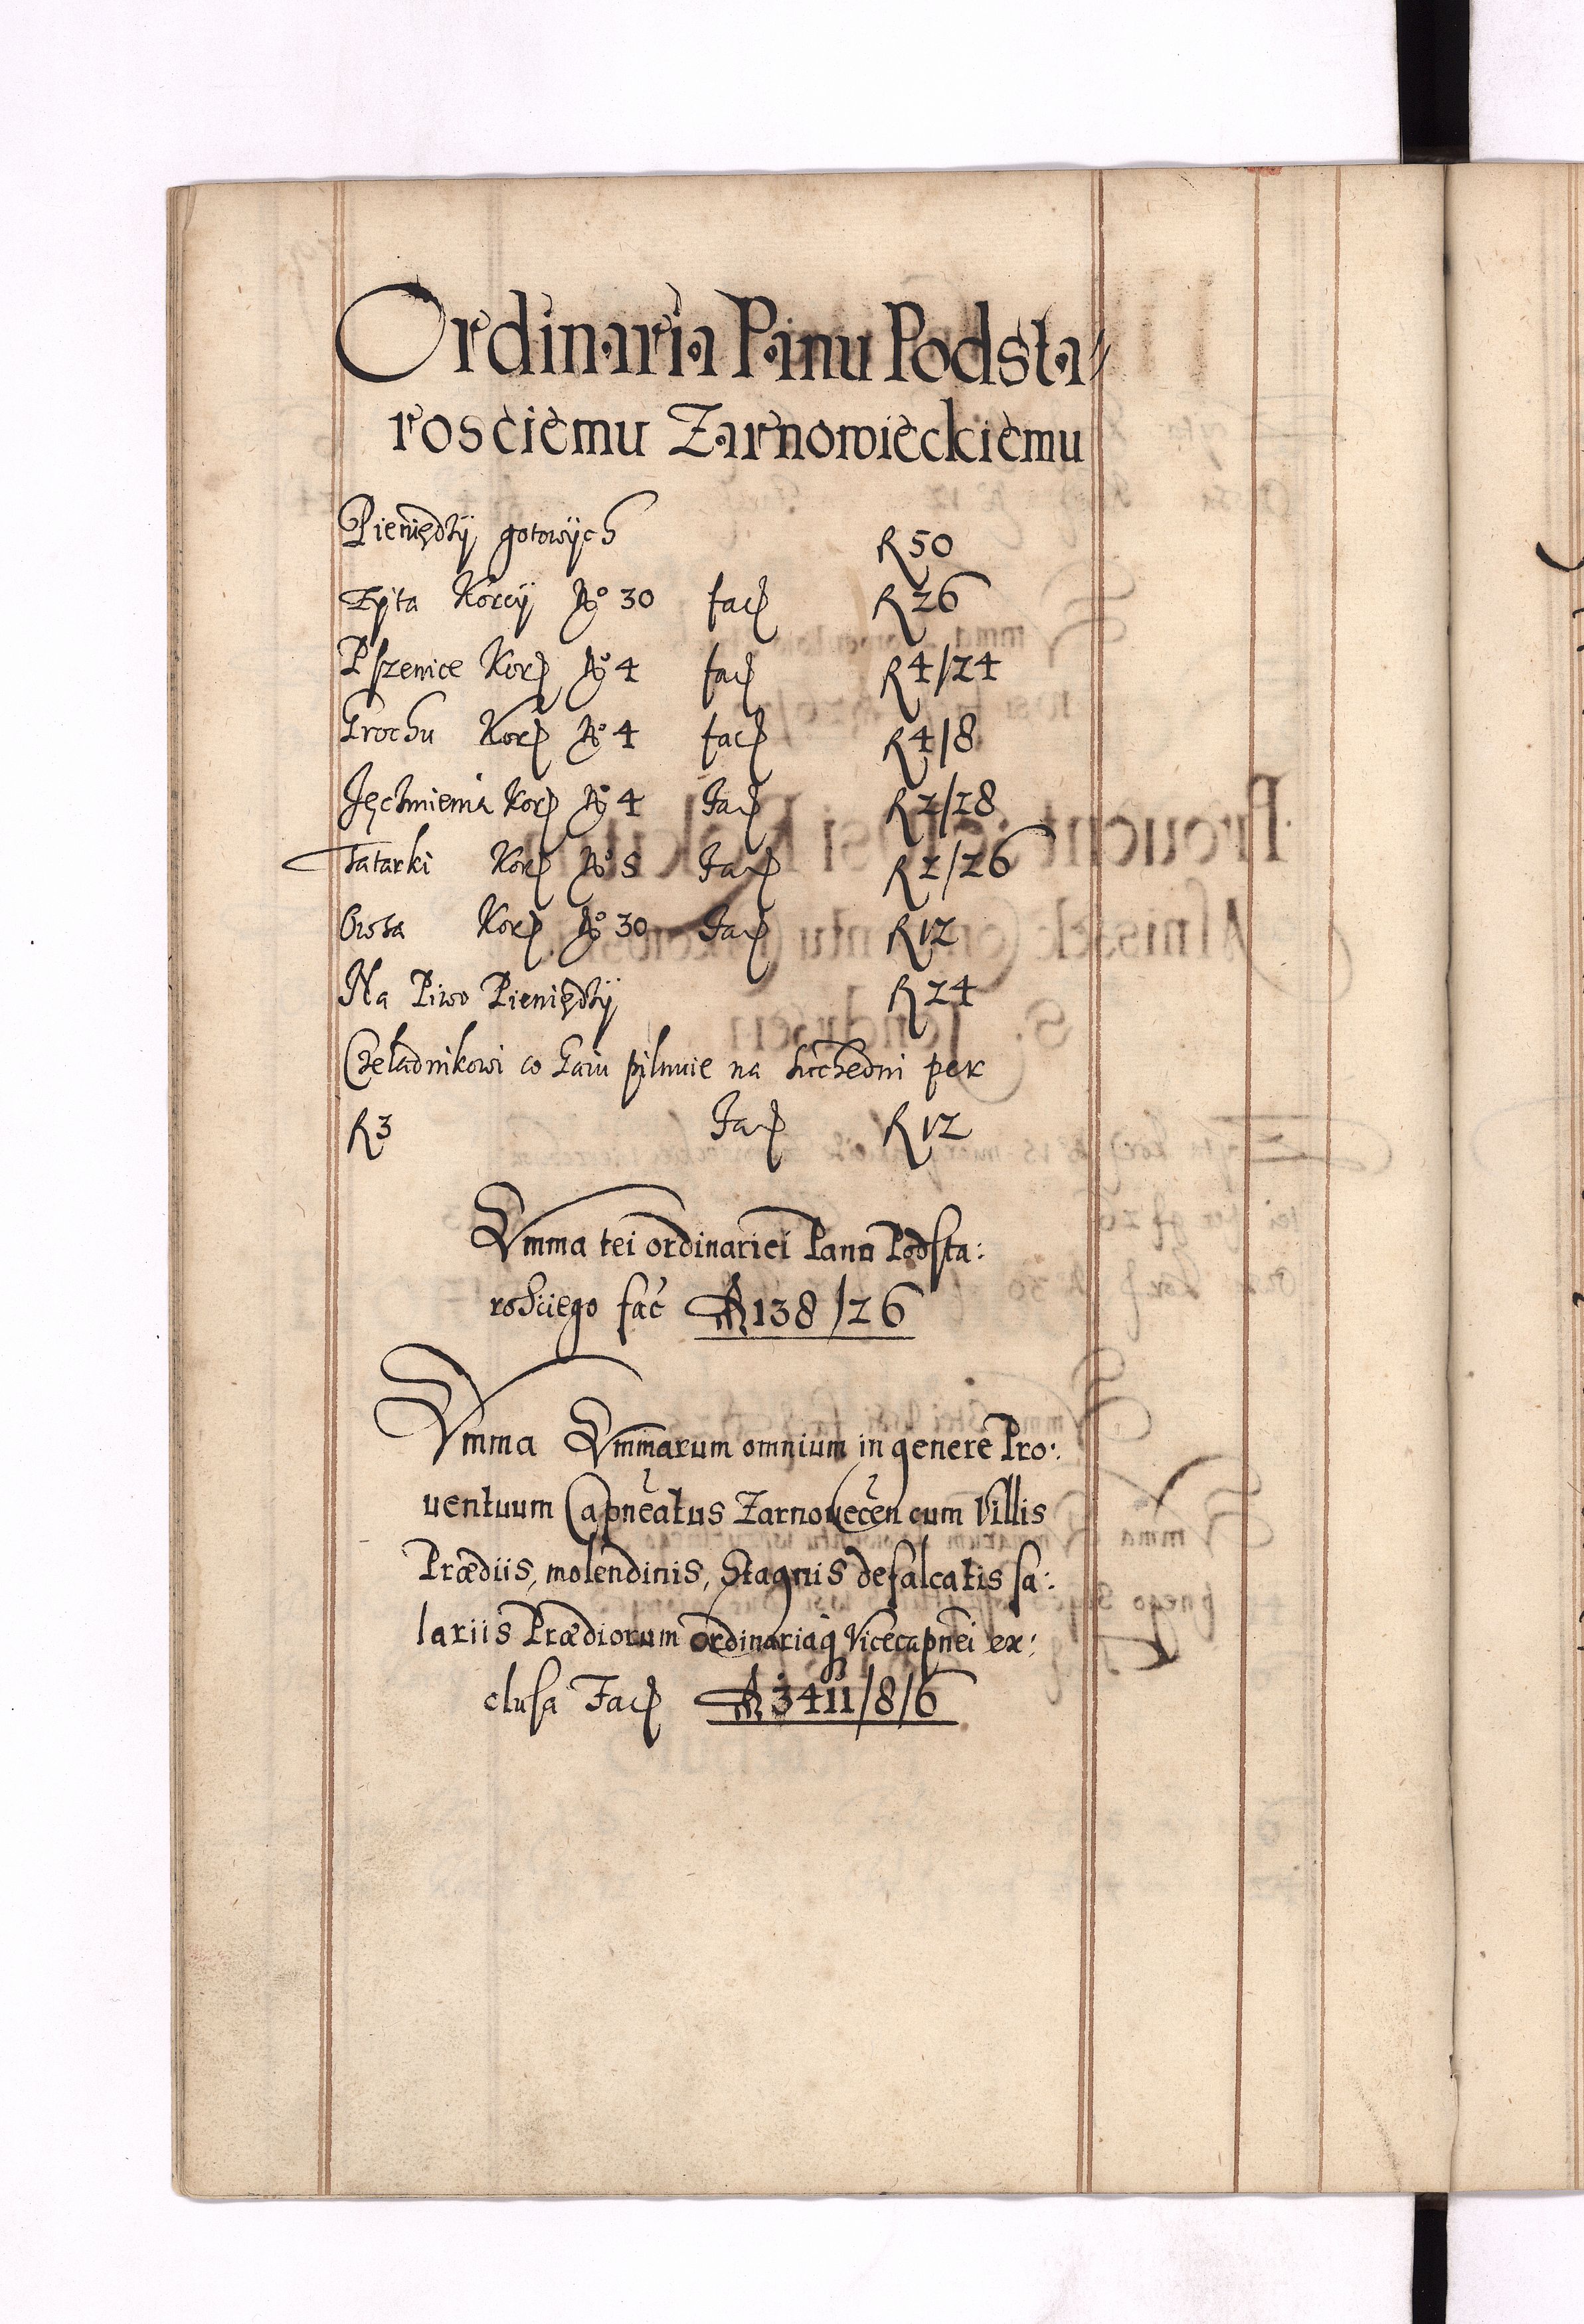 Ordinaria Panu Podsta
rosciemu Zarnowieckiemu
Pieniędzy gotowych R 50
Zyta Korcy No 30 fac R 26
Pszenice Kor No 4 fac R 4/24
Grochu Kor No 4 fac R 4/8
Jęczmienia Kor No 4 Fac R 2/28
Tatarki Kor No 5 Fac R 2/26
Owsa Kor No 30 Fac R 12
Na Piwo Pieniędzy R 24
Czeladnikowi co Gaiu pilnuie na suchedni per
R 3 Fac R 12
Summa tei ordinariei Pana Podsta:
rosciego fac R 138/26
Summa Summarum omnium in genere Pro:
uentuum Capneatus Zarnouecen cum Villis
Prædiis, molendinis, Stagnis defalcatis sa:
lariis Prædiorum ordinariaq Vicecapnei ex:
clusa Fac R 3411/8/6